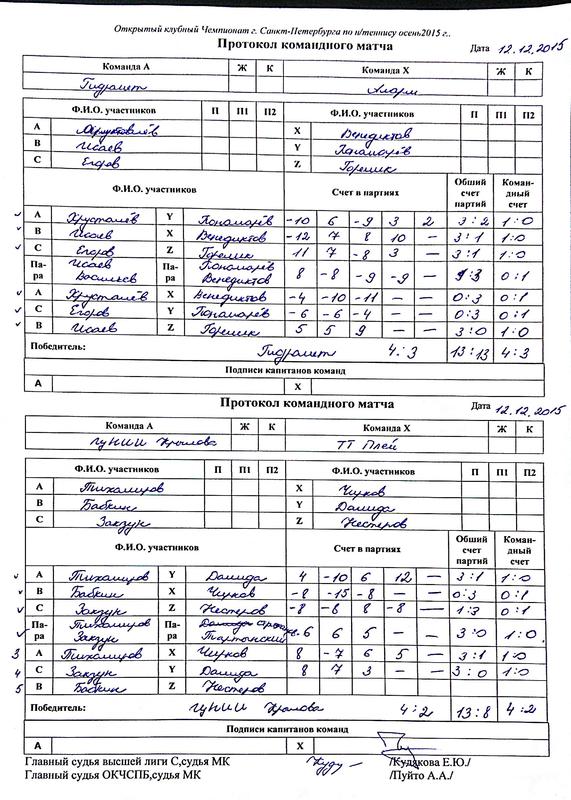 Открытый клубный Чемпионат г. Санкт-Петербурга по н/теннису осень2015 г..
Протокол командного матча Дата 12.12.2015
Команда А Ж К Команда Х Ж К
Гидромет
Ф.И.О. участников П П1 П2 Ф.И.О. участников П П1 П2
А Хрусталёв Х Венедиктов
В Исаев Y Пономарёв
С Егоров Z Горелик
Ф.И.О. участников Счет в партиях Общий счет партий Коман-дный счет
А Хрусталёв Y Пономарёв -10 6 -9 3 2 3:2 1:0
В Исаев Х Венедиктов -12 7 8 10 – 3:1 1:0
С Егоров Z Горелик 11 7 -8 3 3:1 1:0
Па-ра Исаев Васильев Па-ра Пономарёв Венедиктов 8 -8 -9 -9 – 1:3 0:1
А Хрусталёв Х Венедиктов -4 -10 -11 – – 0:3 0:1
С Егоров Y Пономарёв -6 -6 -4 – – 0:3 0:1
В Исаев Z Горелик 5 5 9 – – 3:0 1:0
Победитель: Гидромет 4:3 13:13 4:3
Подписи капитанов команд
А Х
Протокол командного матча Дата 12.12.2015
Команда А Ж К Команда Х Ж К
ЦНИИ Крылова ТТ Плей
Ф.И.О. участников П П1 П2 Ф.И.О. участников П П1 П2
А Тихомиров Х Чирков
В Бабкин Y Далида
С Закзун Z Нестеров
Ф.И.О. участников Счет в партиях Общий счет партий Коман-дный счет
А Тихомиров Y Далида 4 -10 6 12 – 3:1 1:0
В Бабкин Х Чирков -8 -15 -8 – – 0:3 0:1
С Закзун Z Нестеров -8 -8 8 -8 – 1:3 0:1
Па-ра Тихомиров Закзун Па-ра 6 6 5 – – 3:0 1:0
3 А Тихомиров Х Чирков 8 -7 6 5 – 3:1 1:0
4 С Закзун Y Далида 8 7 3 – – 3:0 1:0
5 В Бабкин Z Нестеров
Победитель: ЦНИИ Крылова 4:2 13:8 4:2
Подписи капитанов команд
А Х
Главный судья высшей лиги С,судья МК /Кудякова Е.Ю./
Главный судья ОКЧСПБ,судья МК /Пуйто А.А./